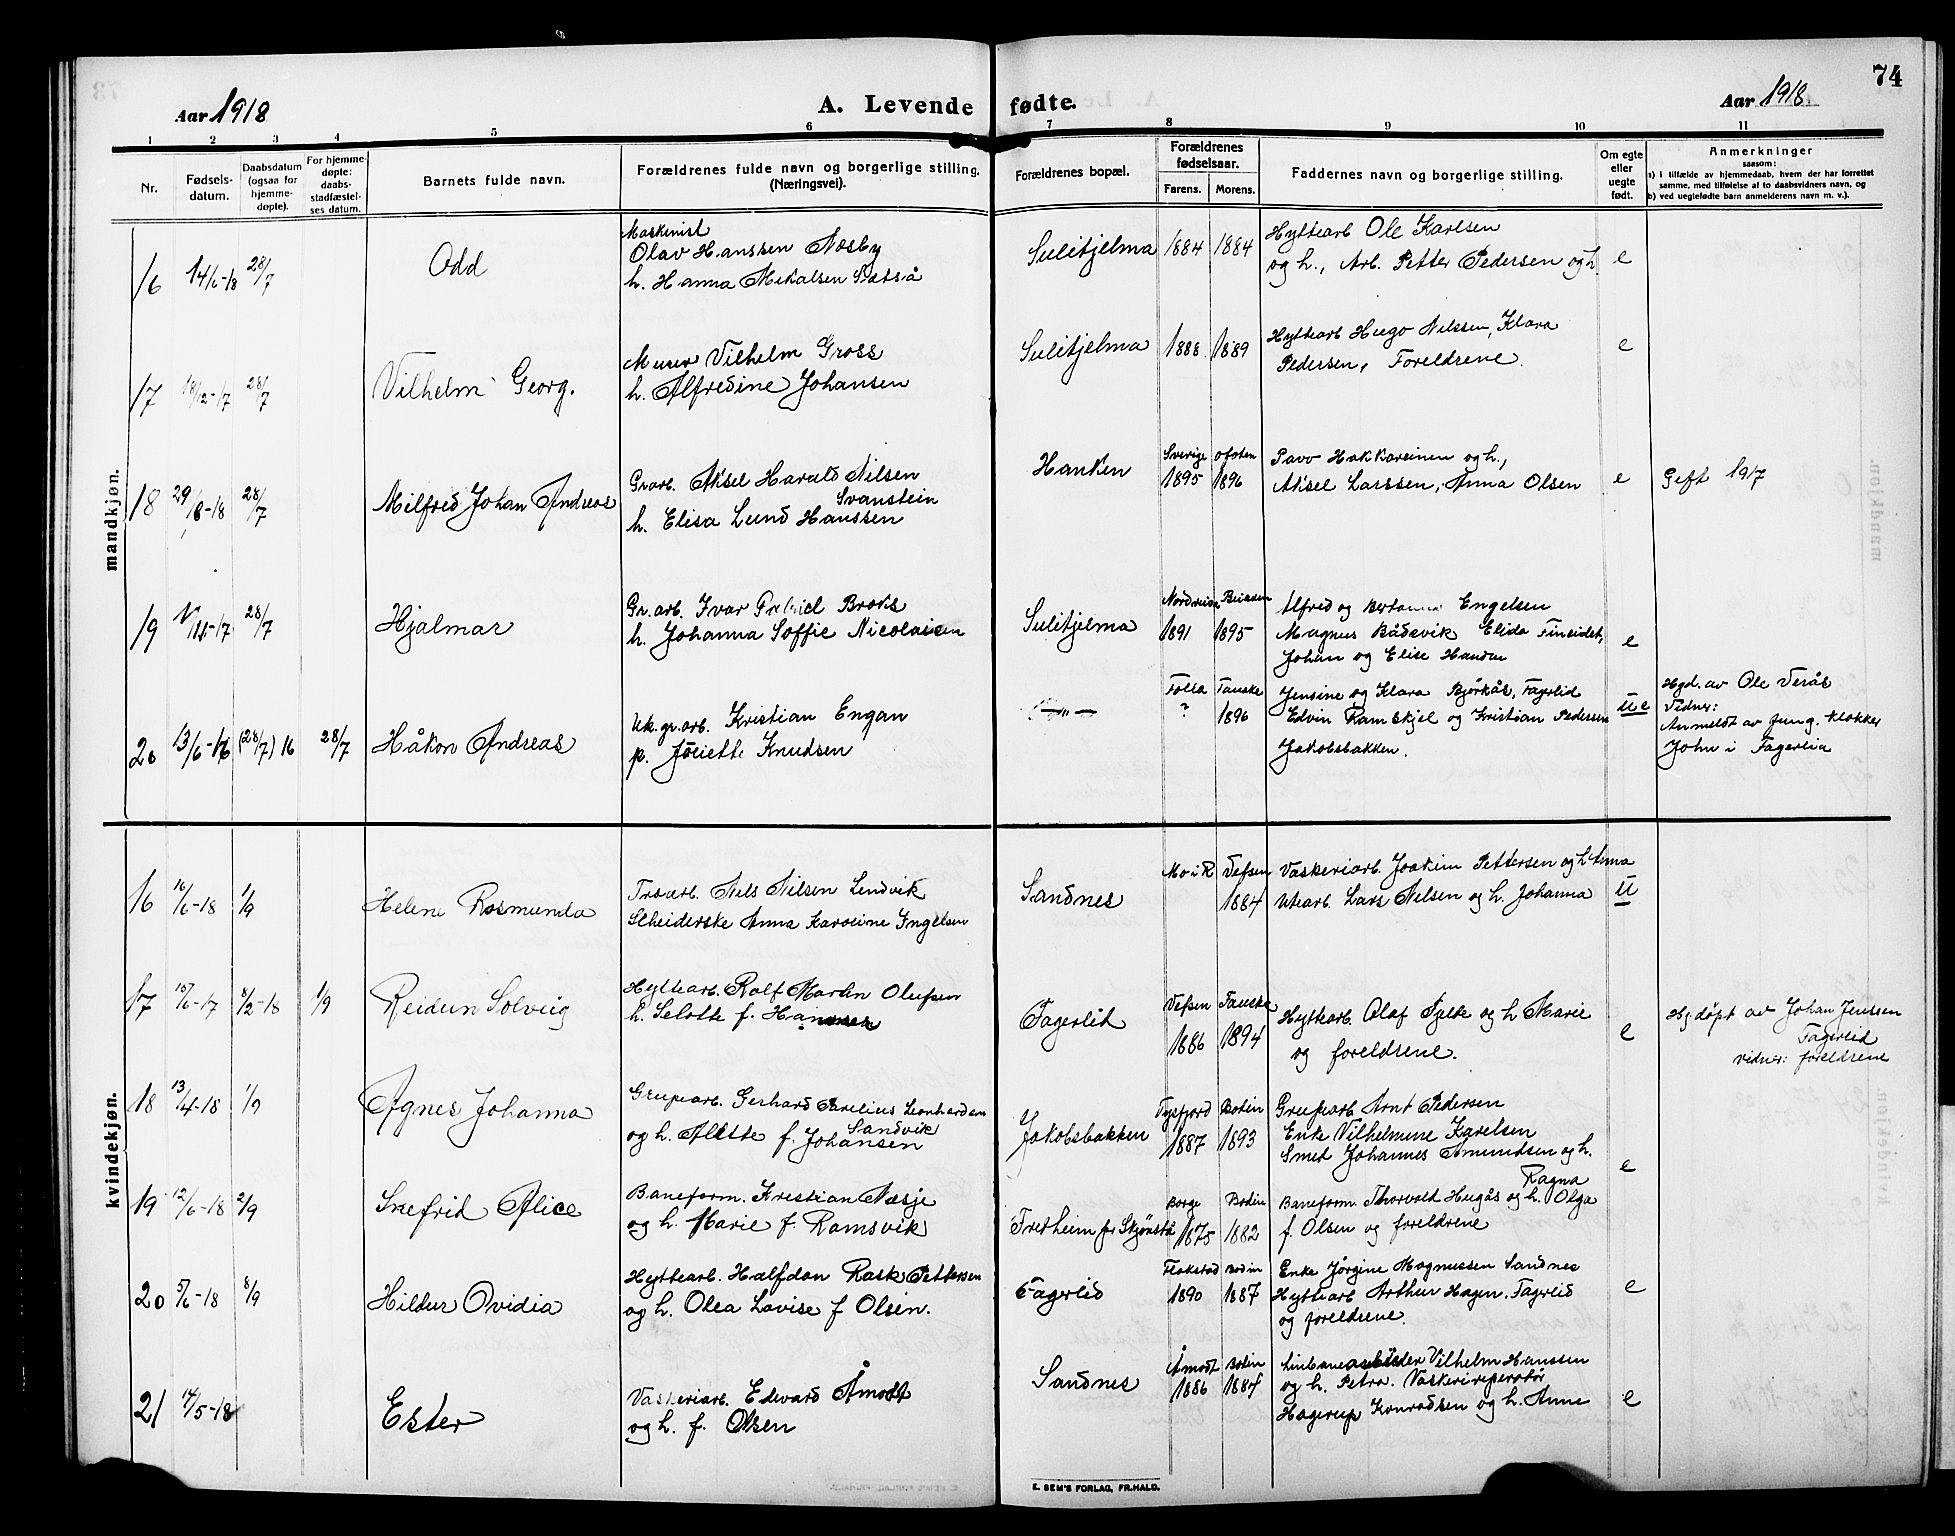 74
Aar 1918
A. Levende fødte.
Aar 1918.
1 2 3 4 5 6 7 8 9 10 11
Nr.
Fødsels-
datum.
Daabsdatum
(ogsaa for
hjemme-
døpte).
For hjemme-
døpte:
daabs-
stadfæstel-
ses datum.
Barnets fulde navn.
Forældrenes fulde navn og borgerlige stilling.
(Næringsvei).
Forældrenes bopæl.
Forældrenes
fødselsaar.
Farens. Morens.
Faddernes navn og borgerlige stilling.
Om egte
eller
uegte
født.
Anmerkninger
saasom:
a) i tilfælde av hjemmedaab, hvem der har forrettet
samme, med tilføielse af to daabsvidners navn, og
b) ved uegtefødte barn anmelderens navn m. v.).
mandkjøn.
16 14/6-18 28/7 Odd
Maskinist
Olav Hanssen Næsby
h. Hanna Mikalsen Sætså
Sulitjelma 1884 1884
Hyttearb Ole Karlsen
og h., Arb. Petter Pedersen og h. e
17 18/12-17 28/7 Vilhelm Georg.
Murer Vilhelm Gross
h. Alfredine Johansen
Sulitjelma 1888 1889
Hyttearb Hugo Nilssen, Klara
Pedersen, Foreldrene. e
18 29/6-18 28/7 Milfred Johan Andreas
Gr.arb. Aksel Harald Nilsen
Svanstein
h. Elisa Lund Hanssen
Hanken Sverige 1895 Ofoten 1896
Pavo Hakkareinen og h.,
Aksel Larssen, Anna Olsen e Geft 1917
19 /11-17 28/7 Hjalmar
Gr.arb. Ivar Broks
h. Johanna Soffie Nicolaisen
Sulitjelma 1891 1895
Alfred og Bertanna Engelsen
Magnus Bådsvik Elida Fineidet,
Johan og Elise Hansen e
20 13/6-16 (28/7) 16 28/7 Håkon Andreas
Uk.gr.arb. Kristian Engan
p. Knudsen
Folla ? Fauske 1896
Jensine og Klara Bjørkås, Fagerlid
Edvin Ramskjel og Kristian Pedersen
Jakobsbakken. u e
Hgd. av Ole Verås
Vidner:
Anmeldt av fung. klokker
John i Fagerlia
kvindekjøn.
16 /6-18 1/9 Helene Rosmunda
Nels Nilsen Lendvik
Scheiderske Anna Karoline Ingelsen
Sandnes Mo i R Vefsen 1884
Vaskeriarb. Joakim Pettersen og h Anna
Utearb. Lars Nilsen og h. Johanna u
17 /6-17 8/2-18 1/9 Reidun Solveig
Hyttearb. Rolf Martin Olufsen
h. Selotte f. Hansen
Fagerlid Vefsen 1886 Fauske 1894
Hyttearb. Olaf og h Marie
og foreldrene. e
Hj.døpt av Johan Jenssen
Fagerlid
vidner: foreldrene
18 13/4-18 1/9 Agnes Johanna
Grupearb. Gerhard Leonhardsen
Sandvik
og h. Alette f. Johansen
Jakobsbakken Tysfjord 1887 Bodin 1893
Grupearb Arnt Pedersen
Enke Vilhelmine Karelsen
Smed Johannes Amundsen og h.
Ragna e
19 12/6-18 2/9 Snefrid Alice
Baneform. Kristian Næsje
og h. Marie f. Ramsvik
Fredheim pr Skjønstå Borge 1875 Bodin 1882
Baneform. Thorvald Hugås og h. Olga
f. Olsen og foreldrene
20 5/6-18 8/9 Hildur Ovidia
Hyttearb. Halfdan Rask Pettersen
og h. Olea Lovise f Olsen.
Fagerlid Flakstad 1890 Bodin 1887
Enke Jørgine Magnussen Sandnes
Hyttearb Arthur Hagen. Fagerlid
og foreldrene. e
21 /5-18 Ester
Vaskeriarb. Edvard Åmodt
og h. f. Olsen
Sandnes Åmodt 1886 Bodin 1884
Linbanearbeider Vilhelm Hanssen
og h. Petra. Vaskerireparatør
Hagerup Konradsen og h. Anne e
E. SEM'S FORLAG, FR.HALD.